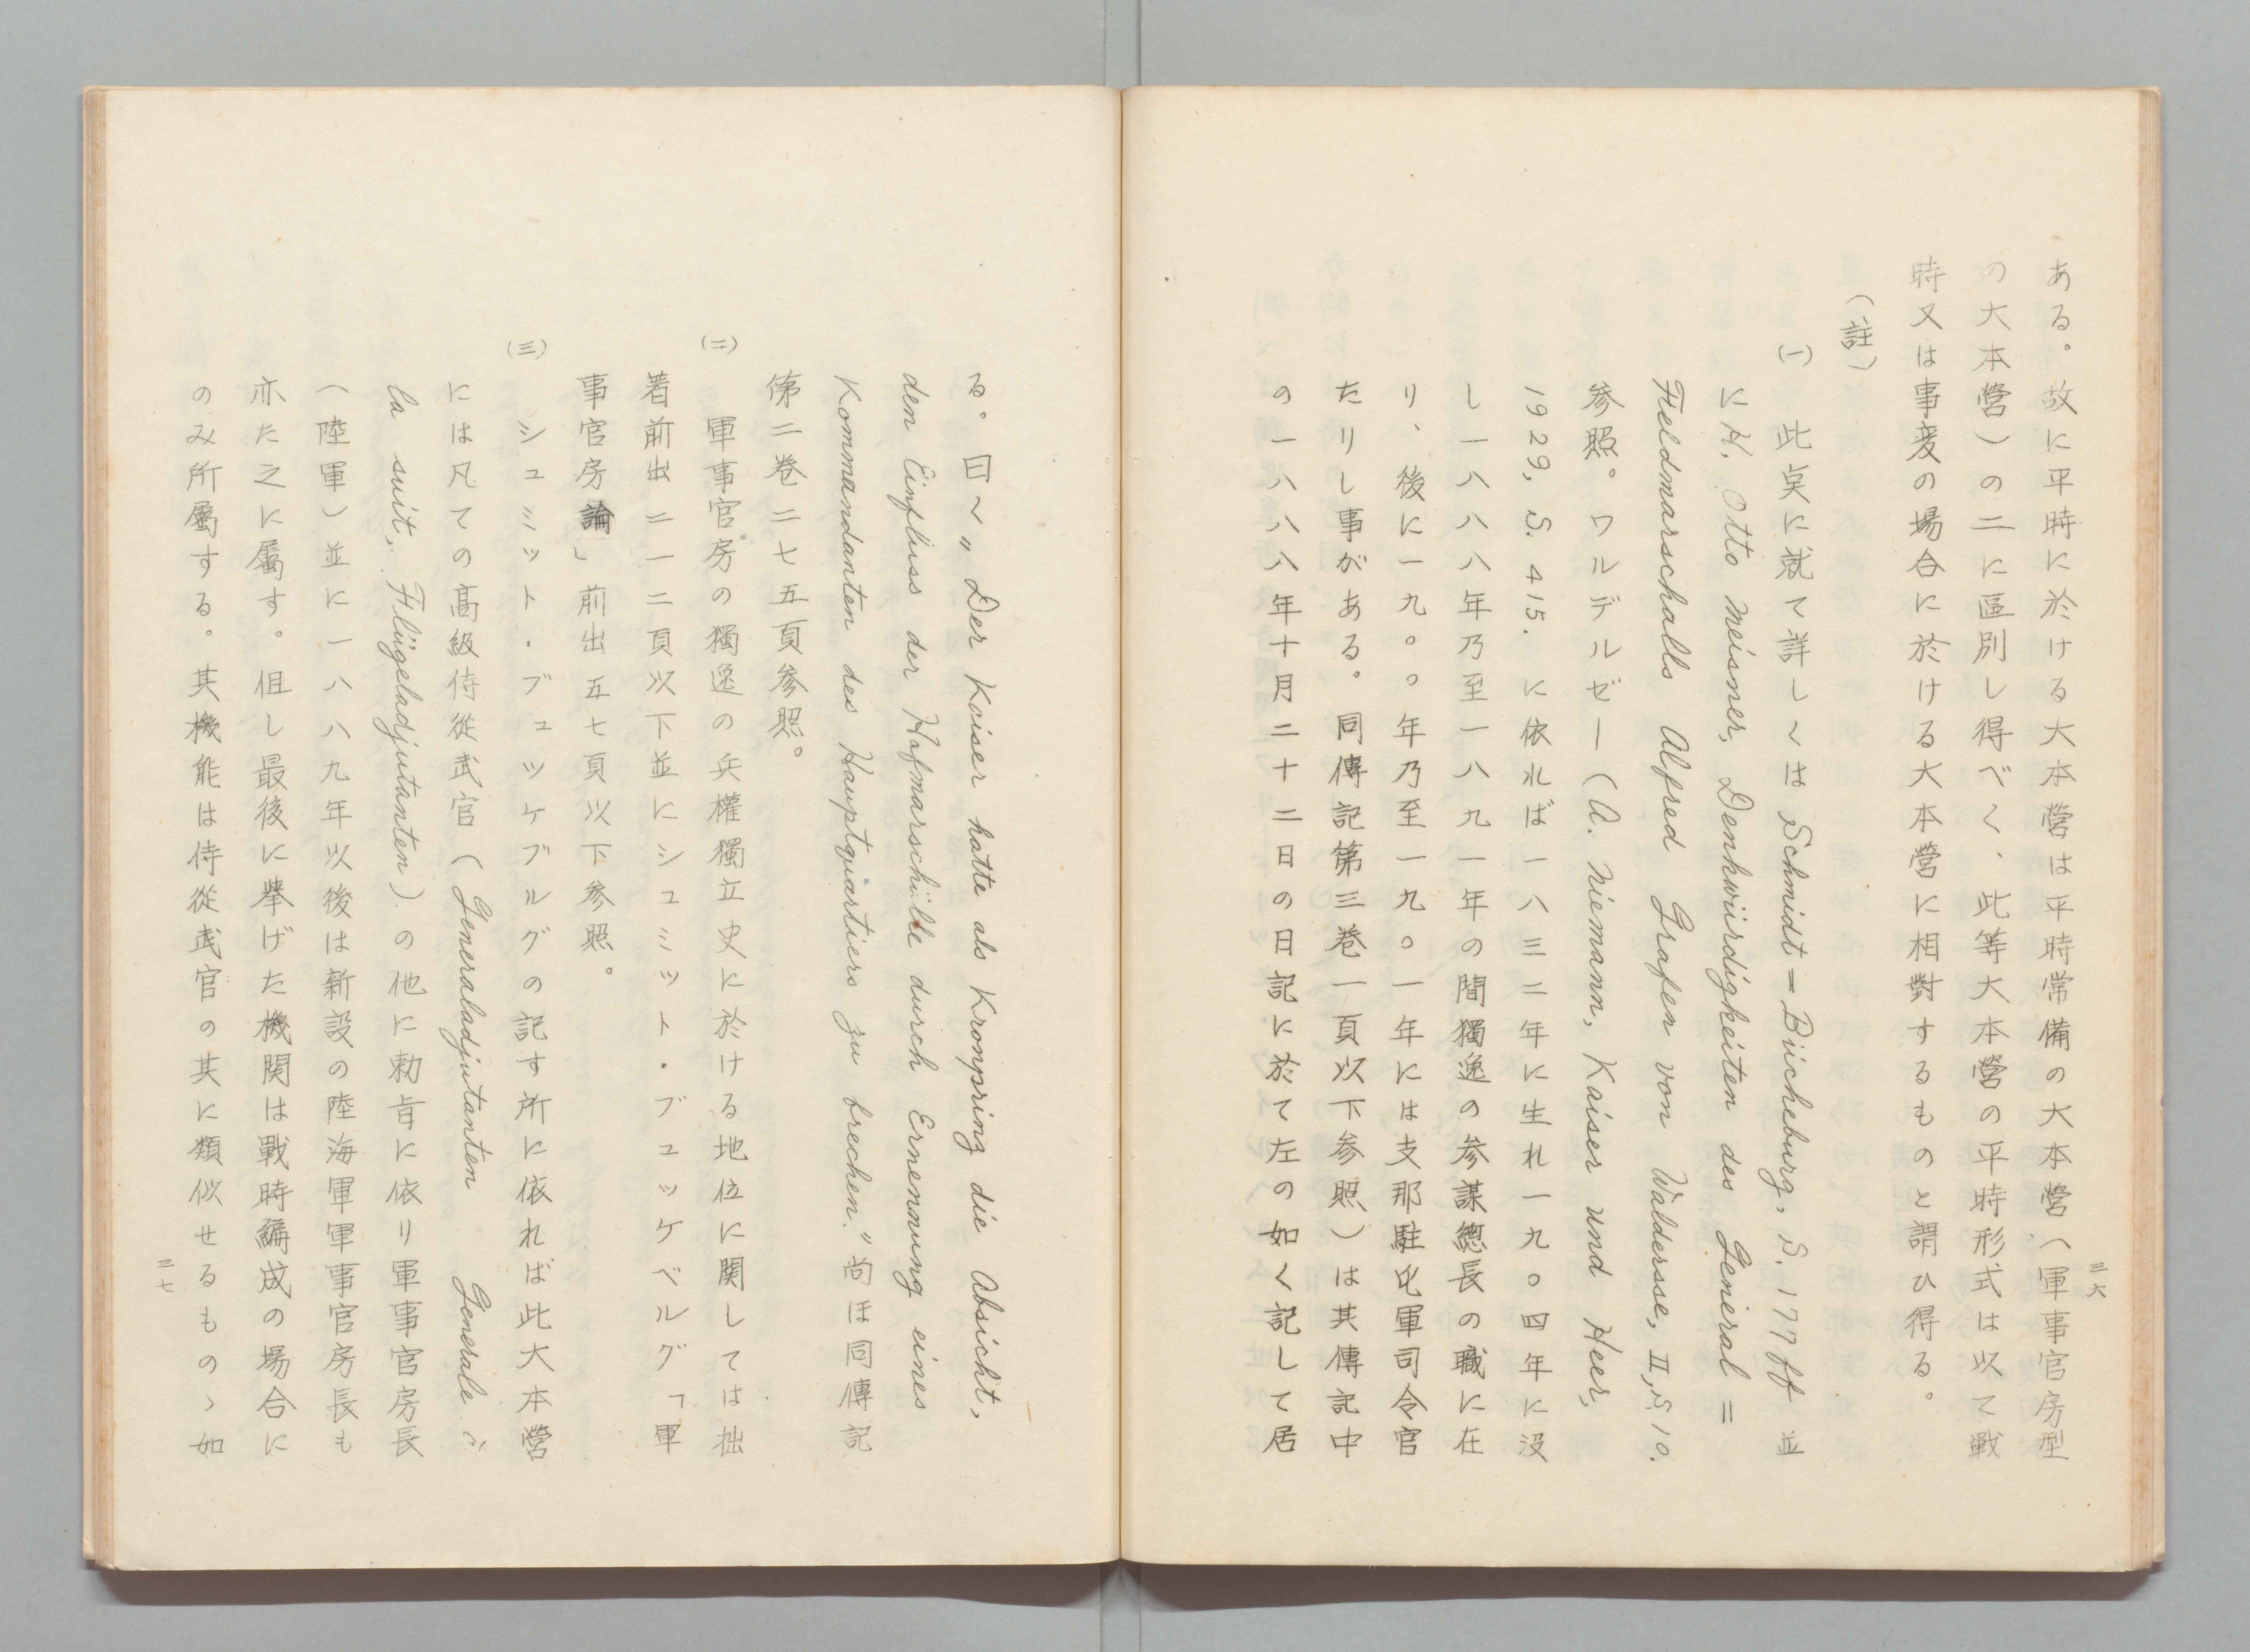 三六
ある。故に平時に於ける大本營は平時常備の大本營（軍事官房型
の大本營）の二に區別し得べく、此等大本營の平時形式は以て戰
時又は事変の場合に於ける大本營に相對するものと謂ひ得る。
（註）
(一) 此奌に就て詳しくは Schmidt=Bücheburg, S. 177 ff 並
に H. Otto Meisner, Denkwürdigkeiten des General=
Feldmarschalls Alfred Grafen von Waldersse, II, S. 10.
参照。ワルデルゼー（A. Niemann, Kaiser und Heer,
1929, S. 415. に依れば一八三二年に生れ一九〇四年に没
し一八八八年乃至一八九一年の間獨逸の参謀總長の職に在
り、後に一九〇〇年乃至一九〇一年には支那駐屯軍司令官
たりし事がある。同傳記第三巻一頁以下参照）は其傳記中
の一八八八年十月二十二日の日記に於て左の如く記して居
る。曰く〃Der Kaiser hatte als Kronpring die Absicht,
den Einfluss der Hofmarschälle durch Ernennung eines
Kommandanten des Hauptquartiers zu brechen.〃尚ほ同傳記
第二巻二七五頁参照。
(二) 軍事官房の獨逸の兵權獨立史に於ける地位に関しては拙
著前出二一二頁以下並にシュミット・ブュッケベルグ「軍
事官房論」前出五七頁以下参照。
(三) シュミット・ブュッケブルグの記す所に依れば此大本營
には凡ての高級侍從武官（Generaladjutanten Generale à
la suit, Flügeladjutanten）の他に勅旨に依リ軍事官房長
（陸軍）並に一八八九年以後は新設の陸海軍軍事官房長も
亦た之に屬す。但し最後に擧げた機関は戰時編成の場合に
のみ所屬する。其機能は侍從武官の其に類似せるものゝ如
三七